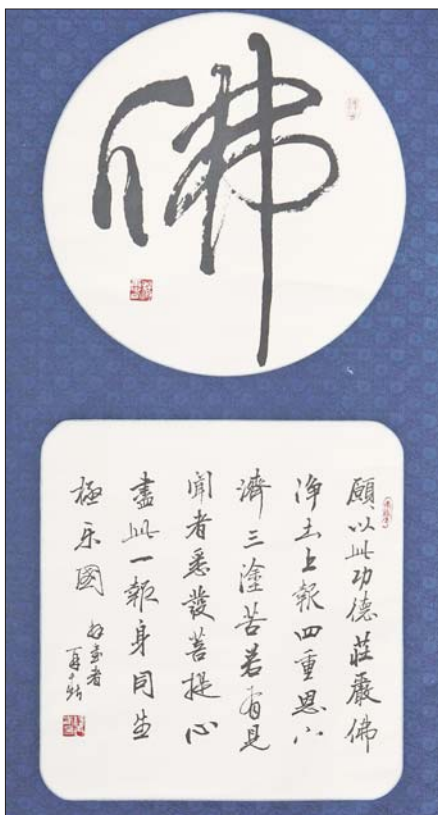 佛
願以此功德莊嚴佛
淨土上報四重恩下
濟三塗苦若有見
聞者悉發菩提心
盡此一報身同生
極乐國